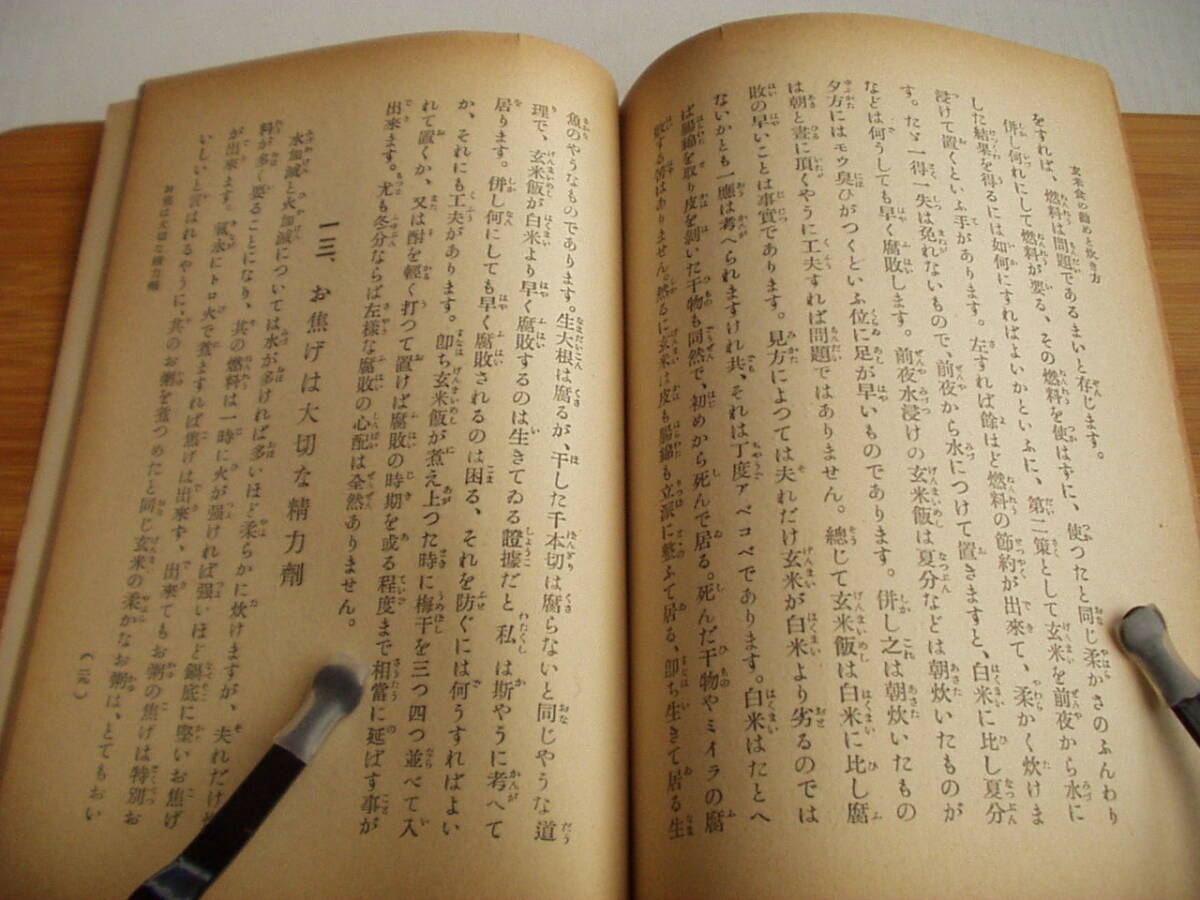 玄米食の勸めと炊き方
をすれば、燃料は問題であるまいと存じます。
併し何れにして燃料が要る、その燃料を使はずに、使つたと同じ柔かさのふんわり
した結果を得るには如何にすればよいかといふに、第二策として玄米を前夜から水に
浸けて置くといふ手があります。左すれば餘ほど燃料の節約が出來て、柔かく炊けま
す。たゞ一得一失は免れないもので、前夜から水につけて置きますと、白米に比し夏分
などは何うしても早く腐敗します。前夜水浸けの玄米飯は夏分などは朝炊いたものが
夕方にはモウ臭ひがつくといふ位に足が早いものであります。併し之は朝炊いたもの
は朝と晝に頂くやうに工夫すれば問題ではありません。總じて玄米飯は白米に比し腐
敗の早いことは事實であります。見方によつては夫れだけ玄米が白米より劣るのでは
ないかとも一應は考へられますけれ共、それは丁度アベコベであります。白米はたとへ
ば腸綿を取り皮を剝いだ干物も同然で、初めから死んで居る。死んだ干物やミイラの腐
敗する筈はありません。然るに玄米は皮も腸綿も立派に整ふて居る、卽ち生きて居る生
魚のやうなものであります。生大根は腐るが、干した千本切は腐らないと同じやうな道
理で、玄米飯が白米より早く腐敗するのは生きてゐる證據だと私は斯やうに考へて
居ります。併し何にしても早く腐敗されるのは困る、それを防ぐには何うすればよい
か、それにも工夫があります。卽ち玄米飯が煮え上つた時に梅干を三つ四つ並べて入
れて置くか、又は酎を輕く打つて置けば腐敗の時期を或る程度まで相當に延ばす事が
出來ます。尤も冬分ならば左樣な腐敗の心配は全然ありません。
一三、お焦げは大切な精力劑
水加減と火加減については水が多ければ多いほど柔らかに炊けますが、夫れだけ
料が多く要ることになり、其の燃料は一時に火が强ければ强いほど鍋底に堅いお焦げ
が出來ます。氣永にトロ火で煮ますれば焦げは出來ず、出來てもお粥の焦げは特別お
いしいと言はれるやうに、其のお粥を煮つめたと同じ玄米の柔かなお粥は、とてもおい
お焦げは大切な精力劑